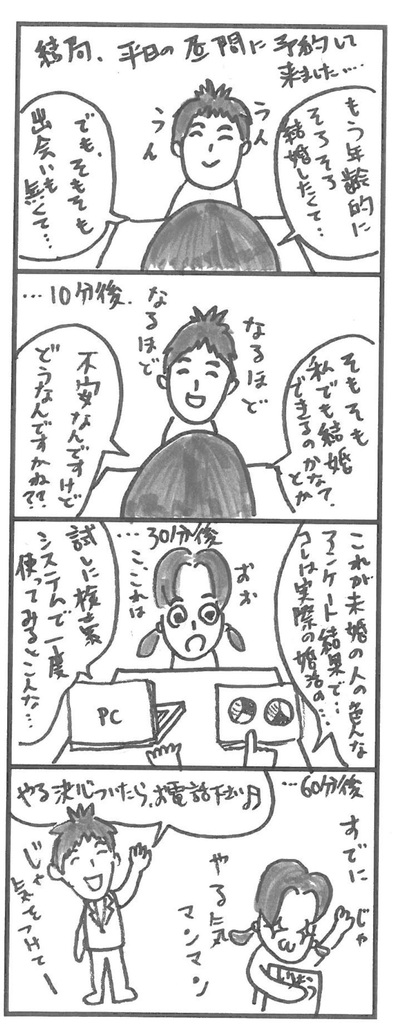 結局、平日の昼間に予約して
来ました…
もう年齢的に
そろそろ
結婚したくて…
うん
うん
でも、そもそも
出会いも
無くて…
…10分後、
そもそも
私でも結婚
できるのかな?
とか
なるほど
なるほど
不安なんですけど
どうなんですかね??
…30分後
これが未婚の人の色んな
アンケート結果で…
コレは実際の婚活の…
おお
ここれは
試しに検索
システムで一度
使ってみるとこんな…
PC
…60分後
やる決心ついたら、お電話下さい♪
すでに
やる気
マンマン
じゃ
じゃ
気をつけてー